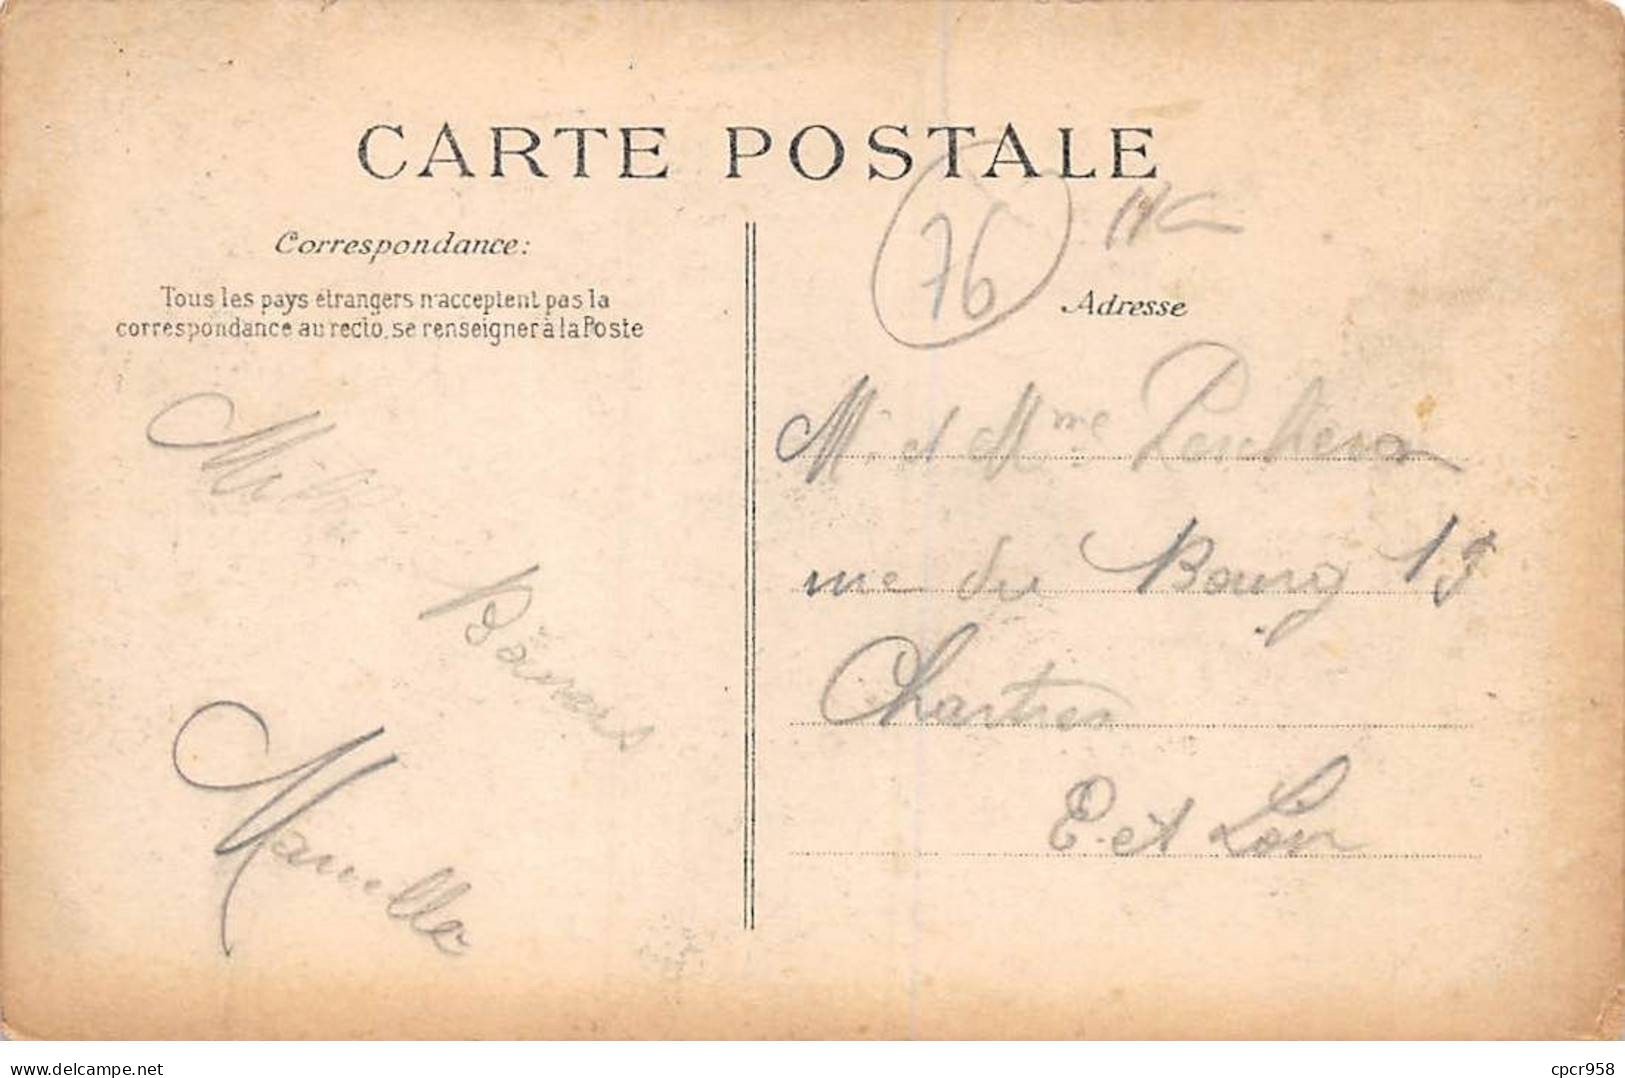 CARTE POSTALE
Correspondance:
Tous les pays étrangers n'acceptent pas la
correspondance au recto, se renseigner à la Poste
Mille
Baisers
Marcelle
76
Adresse
M. et Mme
rue du Bourg 19
Chartres
E. et Loir
delcampe.net
cpcr958